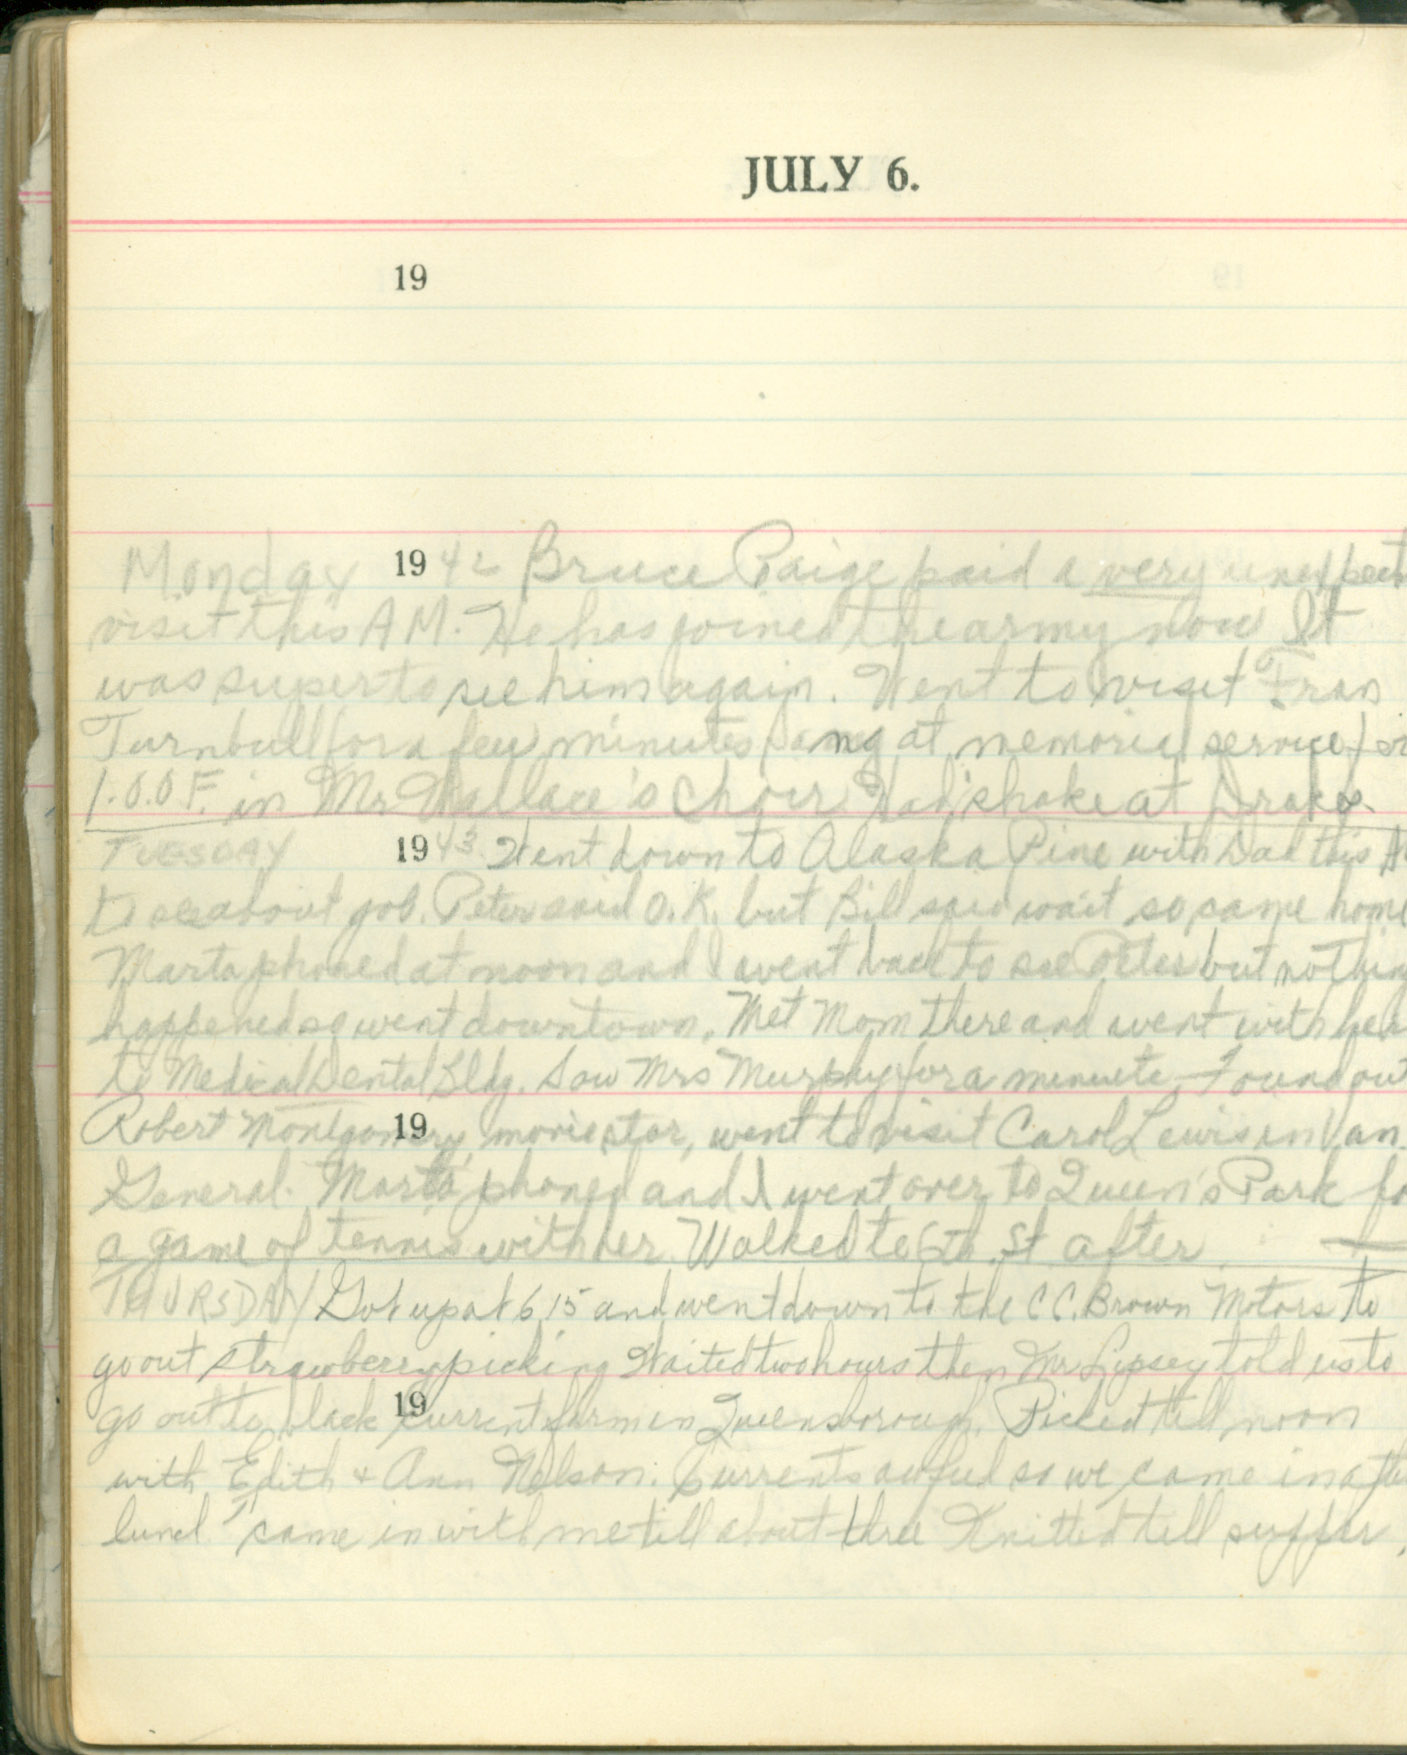 JULY 6.
19
Monday 1942 Bruce Paige paid a very unexpect
visit this A M. He has joined the army now It
was super to see him again. Went to visit Fran
Turnbull for a few minutes. Sang at memorial service for
I.O.O.F. in Mr Wallace's choir. Had shake at Drakes.
TUESDAY 1943 Went down to Alaska Pine with Dad this A
to see about job. Peter said O.K. but Bill said wait so came home
Marta phoned at noon and I went back to see Peter but nothin
happened so went downtown. Met Mom there and went with her
to Medical Dental Bldg. Saw Mrs Murphy for a minute. Found out
Robert Montgomery, movie star, went to visit Carol Lewis in Van.
19
General. Marta phoned and I went over to Queen's Park fo
a game of tennis with her. Walked to 6th St after
THURSDAY Got up at 6.15 and went down to the C C. Brown Motors to
go out strawberry picking Waited two hours then Mr Lipsey told us to
go out to black currant farm in Queensborough. Picked till noon
19
with Edith + Ann Nelson. Currents awful so we came in afte
lunch came in with me till about three Knitted till supper.